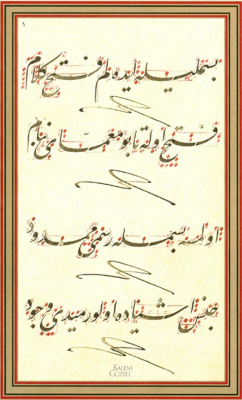 ١
بسمله‌یله ایده لم فتح كلام
فتح اوله تا بو معمای بنام
اولمسه بسمله رسمی ممدود
جنس اشیاده اولورمیدی وجود
KALEM
GÜZELİ